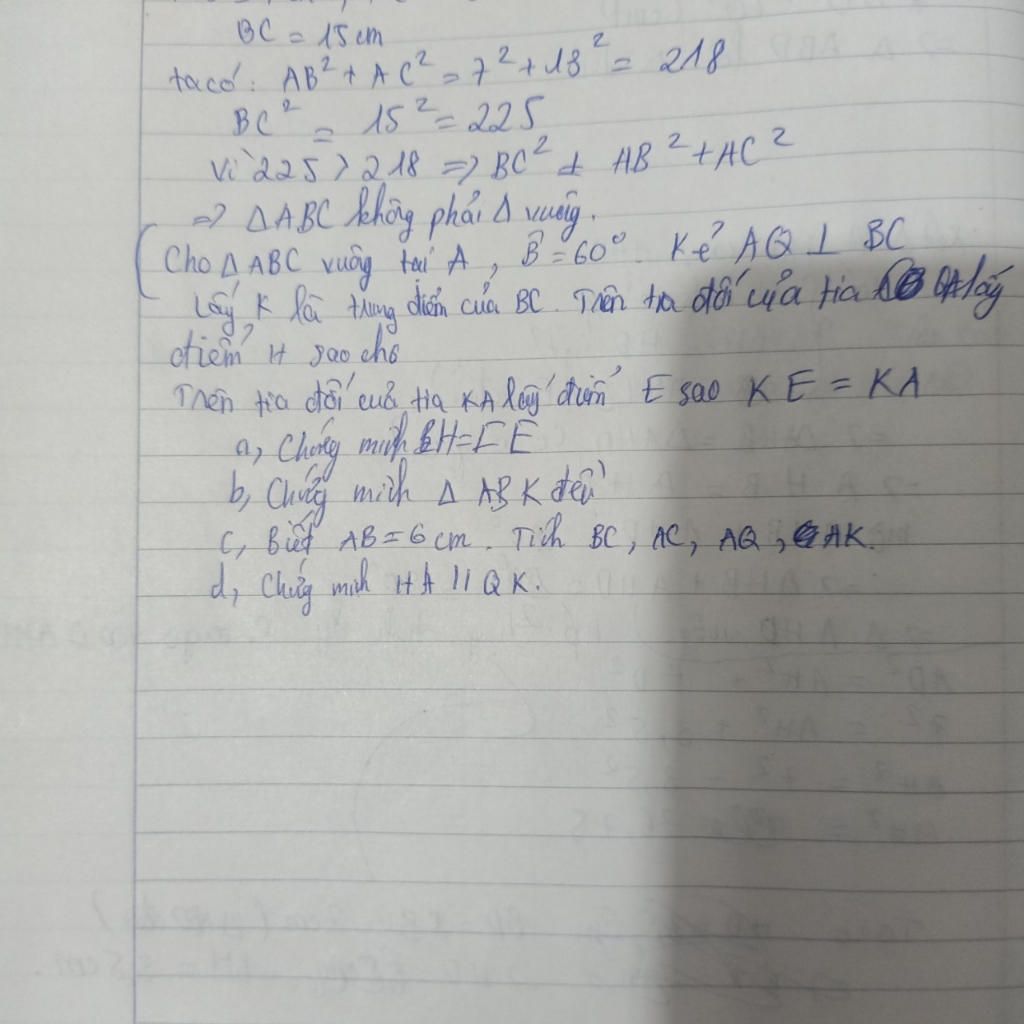 BC = 15 cm
ta có: AB² + AC² = 7² + 13² = 218
BC² = 15² = 225
Vì 225 > 218 => BC² ≠ AB² + AC²
=> ΔABC không phải Δ vuông.
Cho Δ ABC vuông tại A, B̂ = 60°. Kẻ AQ ⊥ BC
Lấy K là trung điểm của BC. Trên tia đối của tia QA lấy
điểm H sao cho
Trên tia đối của tia KA lấy điểm E sao KE = KA
a, Chứng minh H = E
b, Chứng minh Δ ABK đều
c, Biết AB = 6 cm. Tính BC, AC, AQ, AK.
d, Chứng minh HA // QK.